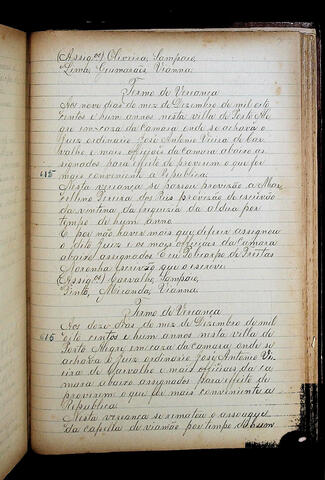 (Assig.os) Oliveira, Sampaio,
Lima, Guimarães, Vianna.
Termo de Veriança
Aos nove dias do mez de Dezembro de mil oito
centos e hum annos nesta villa de Porto Ale
gre em caza da Camara onde se achava o
Juiz ordinario José Antonio Vieira de Car
valho e mais officiaes da Camara abaixo as
signados para effeito de proverem o que for
mais conveniente a Republica.
615
Nesta veriança se passou provisão a Mar
cellino Pereira dos Reis provisão de escrivão
da ventena da freguezia da aldea por
tempo de hum anno.
E por não haver mais que deferir assignou
o dito Juiz e os mais officiaes da Camara
abaixo assignados Eu Policarpo de Freitas
Noronha Escrivão que o escrevi.
(Assig.os) Carvalho, Sampaio,
Pinto, Miranda, Vianna.
Termo de Veriança
Aos doze dias do mez de Dezembro de mil
616 oito centos e hum annos nesta villa de
Porto Alegre em caza da Camara, onde se
achava o Juiz ordinario José Antonio Vi
eira de Carvalho e mais officiaes da ca
mara abaixo assignados para effeito de
proverem o que for mais conveniente a
Republica.
Nesta veriança se rematou o assougue
da capella de viamão por tempo de hum